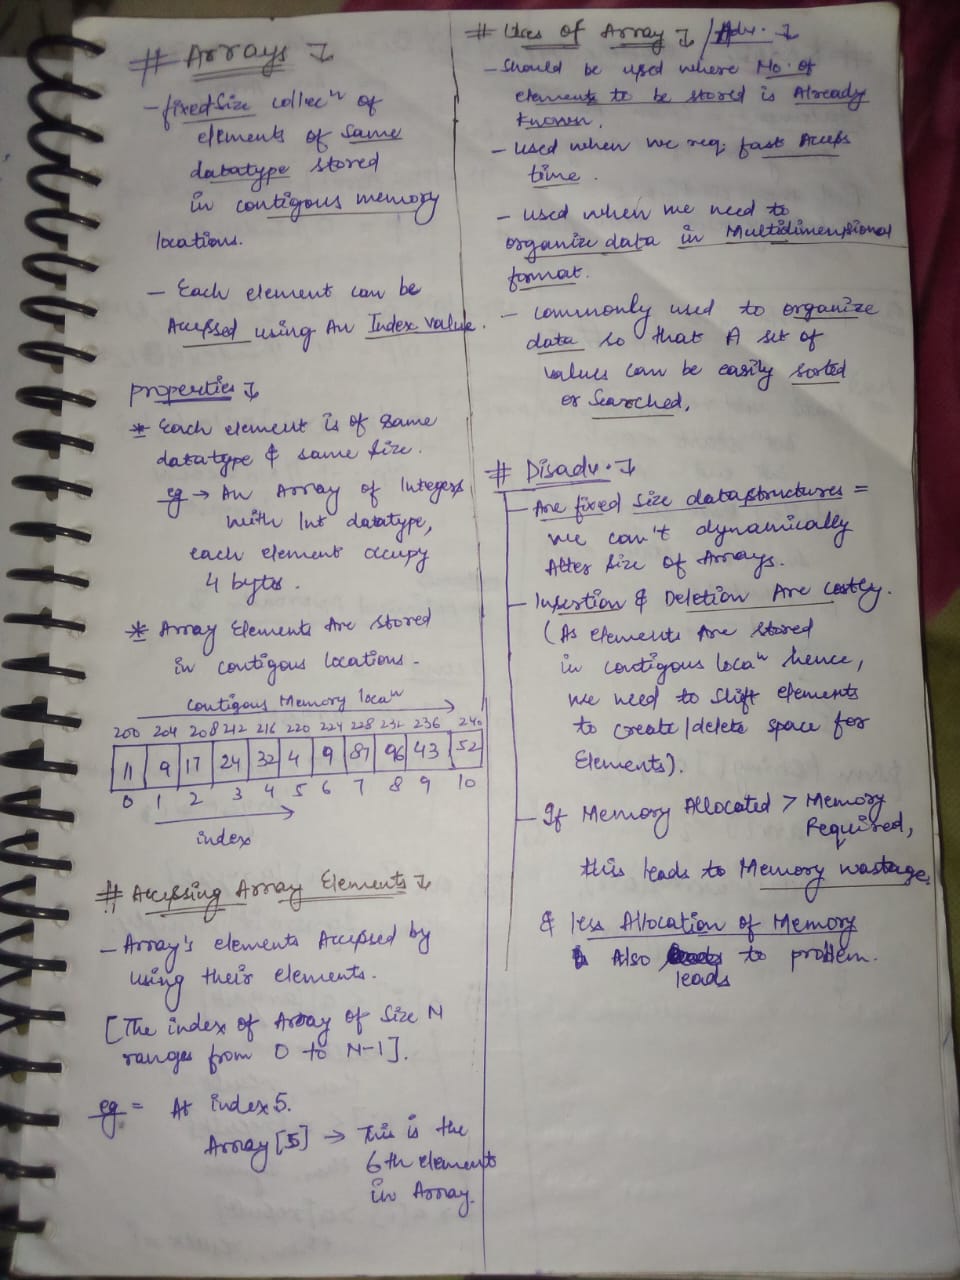 # Arrays :
- fixed size collecⁿ of
elements of same
datatype stored
in contigous memory
locations.
- Each element can be
Accessed using An Index value.
properties :
* Each element is of same
datatype & same size.
eg → An Array of Integers
with Int datatype,
each element occupy
4 bytes.
* Array Elements Are stored
in contigous locations.
contigous Memory locaⁿ
200 204 208 212 216 220 224 228 232 236 240
11 9 17 24 32 4 9 87 96 43 52
0 1 2 3 4 5 6 7 8 9 10
index
# Accessing Array Elements :
- Array's elements Accessed by
using their elements.
[The index of Array of Size N
ranges from 0 to N-1].
eg = At index 5.
Array[5] → This is the
6th element
in Array.
# Uses of Array : / Adv. :
- should be used where No. of
elements to be stored is Already
known.
- used when we req. fast Access
time.
- used when we need to
organize data in Multidimensional
format.
- commonly used to organize
data so that A set of
values can be easily sorted
or Searched.
# Disadv. :
- Are fixed size datastructures =
we can't dynamically
Alter Size of Arrays.
- Insertion & Deletion Are costly.
(As elements Are stored
in contigous locaⁿ hence,
we need to shift elements
to create/delete space for
Elements).
- If Memory Allocated > Memory
Required,
this leads to Memory wastage
& less Allocation of Memory
Also leads to problem.